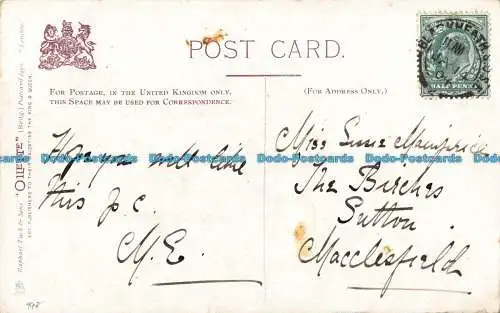 POST CARD.
FOR POSTAGE, IN THE UNITED KINGDOM ONLY,
THIS SPACE MAY BE USED FOR CORRESPONDENCE.
(FOR ADDRESS ONLY.)
HALF PENNY
BLACKHEATH
Raphael Tuck & Sons' "OILETTE" [Regd.] Postcard
ART PUBLISHERS TO THEIR MAJESTIES THE KING & QUEEN.
Hope you will like
this p.c.
M.E.
Miss
The Birches
Sutton
Macclesfield
Dodo-Postcards Dodo-Postcards Dodo-Postcards Dodo-Postcards